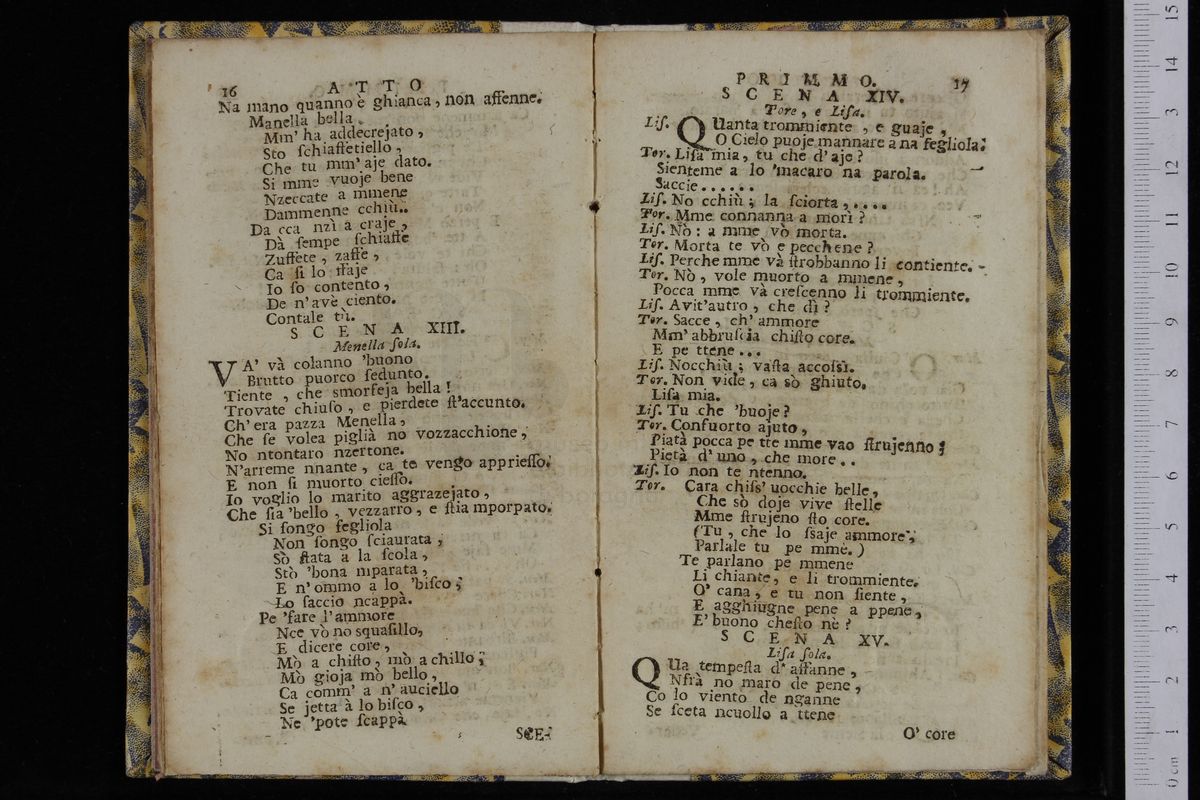 16 ATTO
Na mano quanno è ghianca, non affenne.
Manella bella.
Mm' ha addecrejato,
Sto ſchiaffetiello,
Che tu mm' aje dato.
Si mme vuoje bene
Nzeccate a mmene
Dammenne cchiù..
Da cca nzì a craje,
Dà ſempe ſchiaffe
Zuffete, zaffe,
Ca ſi lo ſtaje
Io ſo contento,
De n'avè ciento.
Contale tu.
SCENA XIII.
Menella ſola.
VA' và colanno 'buono
Brutto puorco ſedunto.
Tiente, che smorfeja bella!
Trovate chiuſo, e pierdete ſt'accunto.
Ch'era pazza Menella,
Che ſe volea piglià no vozzacchione,
No ntontaro nzertone.
N'arreme nnante, ca te vengo apprieſſo.
E non ſi muorto cieſſo.
Io voglio lo marito aggrazejato,
Che ſia 'bello, vezzarro, e ſtia mporpato.
Si ſongo fegliola
Non ſongo ſciaurata,
Sò ſtata a la ſcola,
Stò 'bona mparata,
E n'ommo a lo 'biſco,
Lo ſaccio ncappà.
Pe 'fare l'ammore
Nce vò no squaſillo,
E dicere core,
Mò a chiſto, mò a chillo;
Mò gioja mò bello,
Ca comm' a n' auciello
Se jetta à lo biſco,
Ne 'pote ſcappà
SCE-
PRIMMO. 17
SCENA XIV.
Tore, e Liſa.
Liſ. QUanta trommiente, e guaje,
O Cielo puoje mannare a na fegliola!
Tor. Liſa mia, tu che d'aje?
Sienteme a lo 'macaro na parola.
Saccie......
Liſ. No cchiù; la ſciorta,....
Tor. Mme connanna a morì?
Liſ. Nò: a mme vò morta.
Tor. Morta te vò e pecchene?
Liſ. Perche mme và ſtrobbanno li contiente.
Tor. Nò, vole muorto a mmene,
Pocca mme và creſcenno li trommiente.
Liſ. Avit'autro, che dì?
Tor. Sacce, ch' ammore
Mm' abbruſcia chiſto core.
E pe ttene...
Liſ. Nocchiù; vaſta accoſsì.
Tor. Non vide, ca sò ghiuto,
Liſa mia.
Liſ. Tu che 'buoje?
Tor. Confuorto ajuto,
Piatà pocca pe tte mme vao ſtrujenno;
Pietà d'uno, che more..
Liſ. Io non te ntenno.
Tor. Cara chiſs' uocchie belle,
Che sò doje vive ſtelle
Mme ſtrujeno ſto core.
(Tu, che lo ſsaje ammore,
Parlale tu pe mme.)
Te parlano pe mmene
Li chiante, e li trommiente.
O' cana, e tu non ſiente,
E agghiugne pene a ppene,
E' buono cheſto nè?
SCENA XV.
Liſa ſola.
QUa tempeſta d' affanne,
Nfrà no maro de pene,
Co lo viento de nganne
Se ſceta ncuollo a ttene
O' core
0 cm 1 2 3 4 5 6 7 8 9 10 11 12 13 14 15